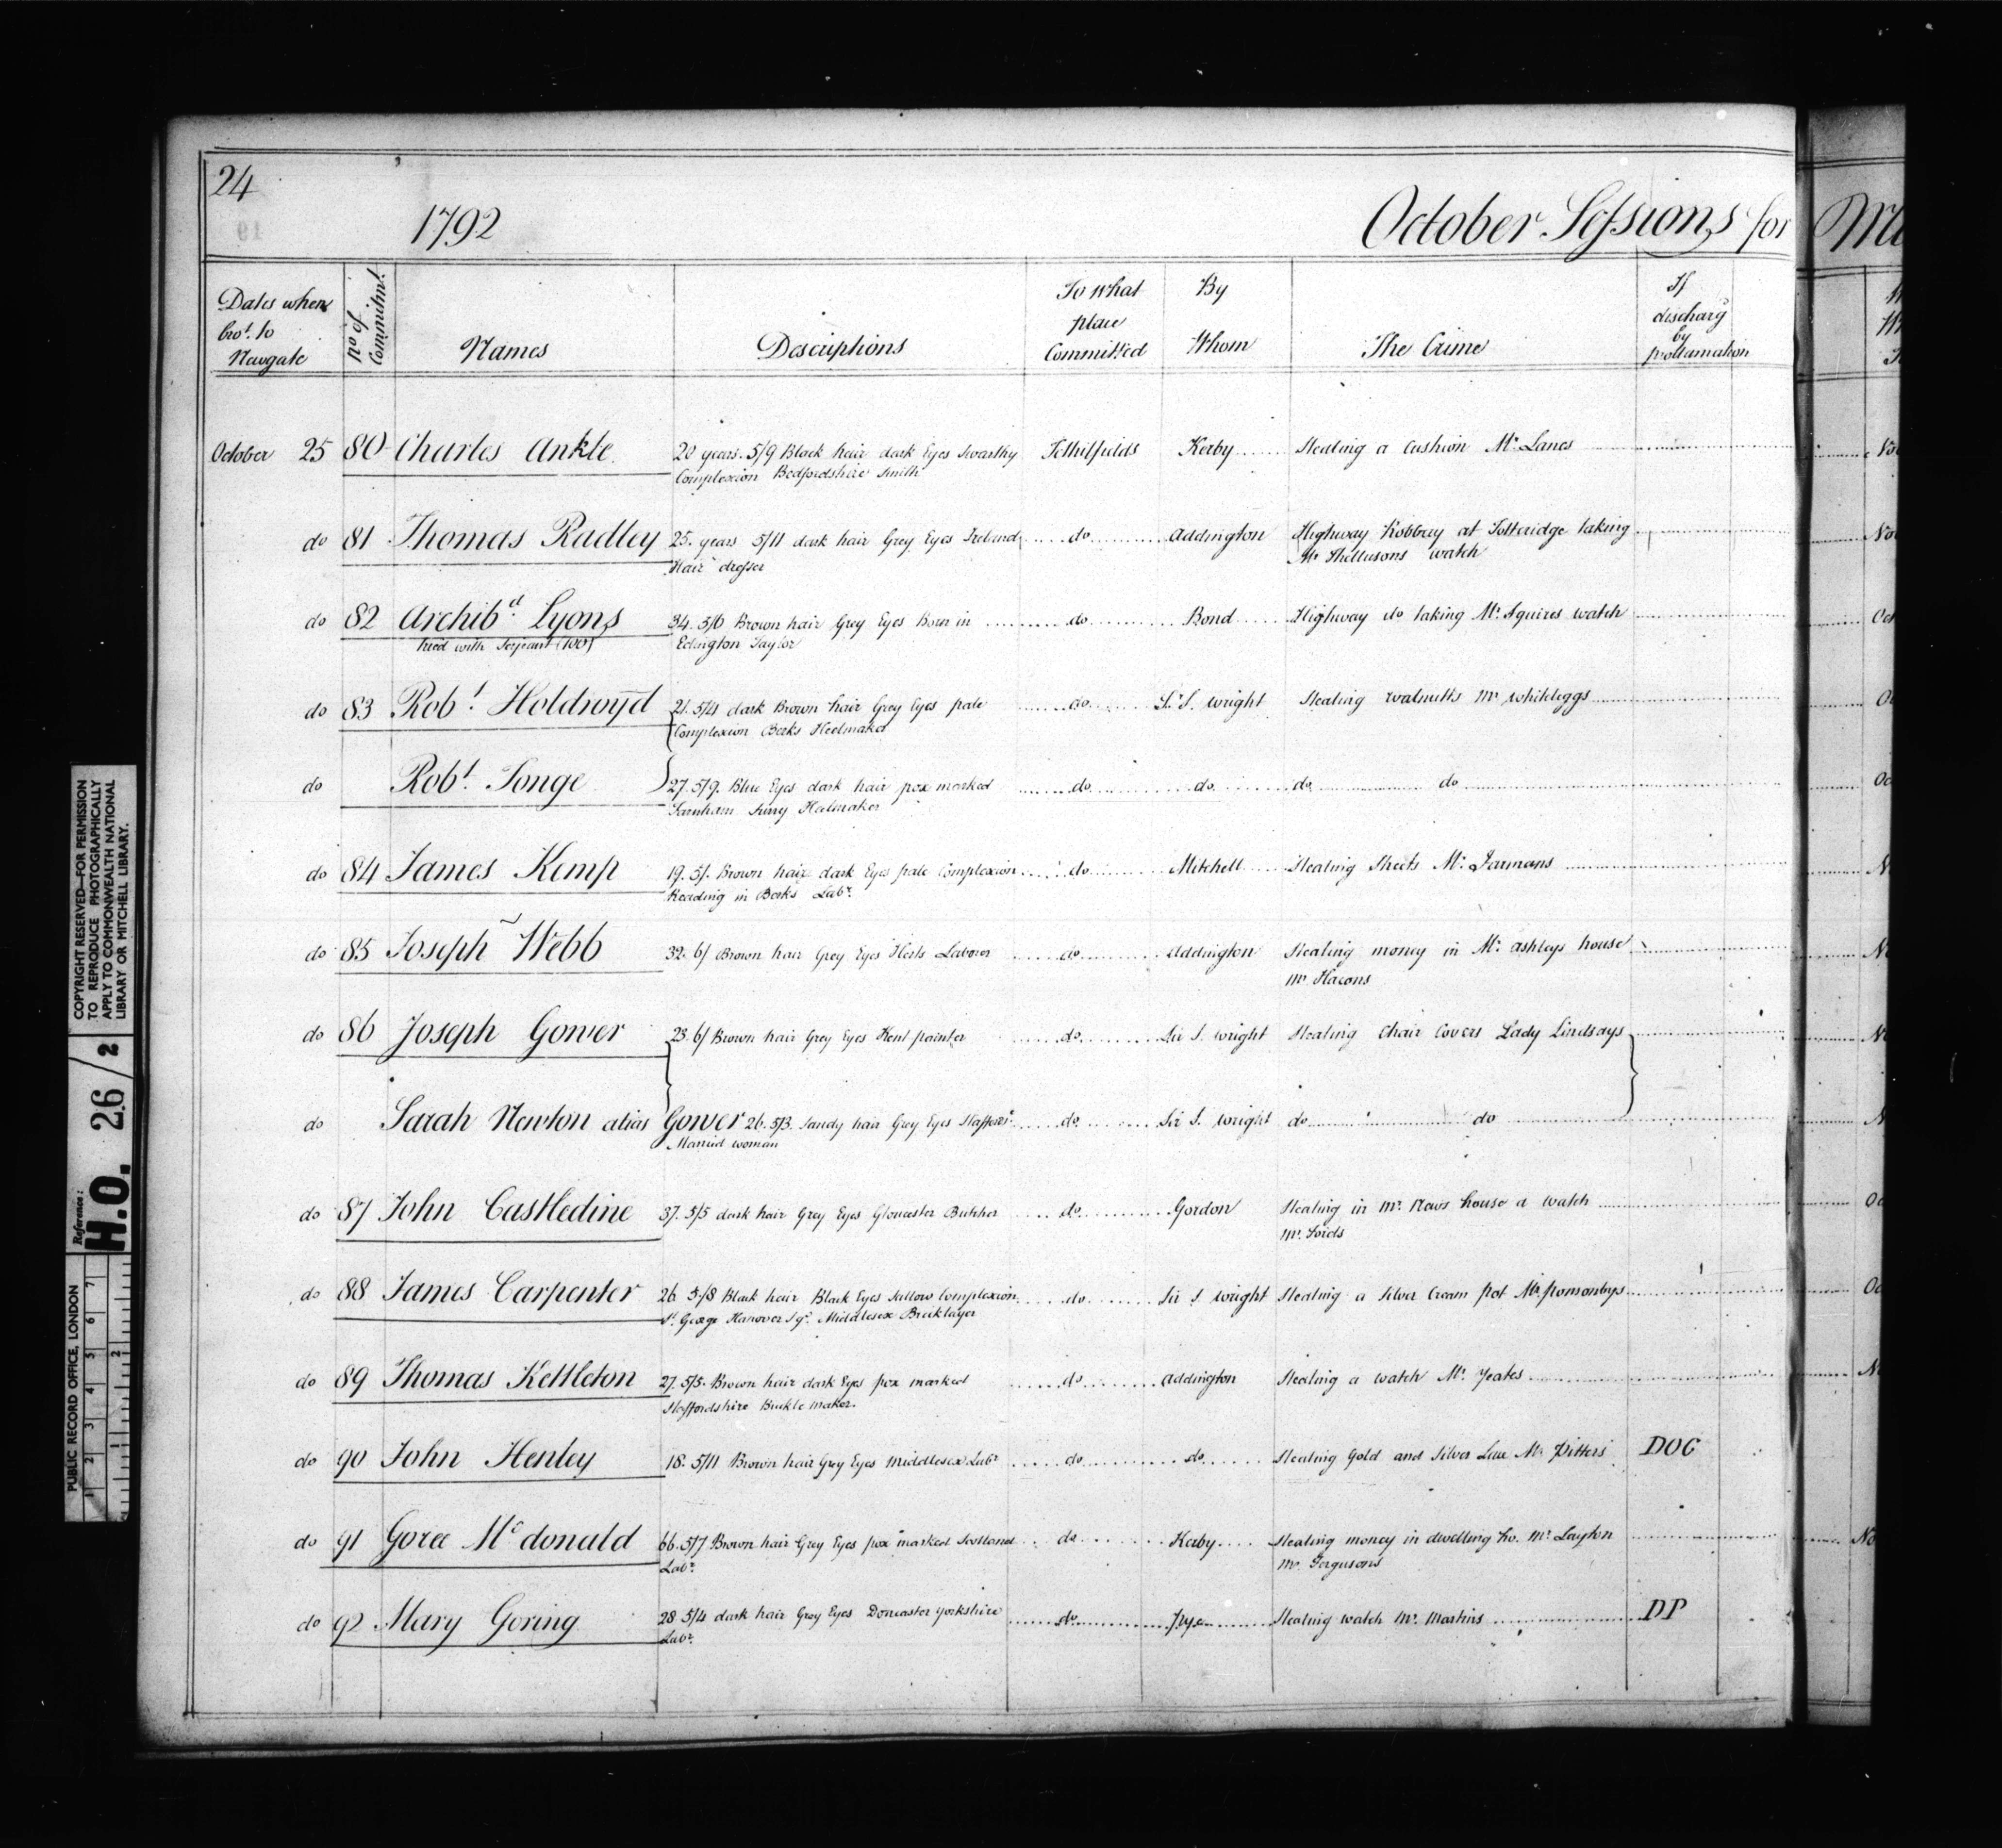 24
1792
October Sessions for
Dates when
bro.t to
Newgate
No of
Commitm.t
Names
Descriptions
To what
place
Committed
By
Whom
The Crime
If
discharg
by
proclamation
October 25 80 Charles Ankle 20 years. 5/9 Black hair dark Eyes Swarthy Tothilfields Kerby Stealing a Cushion Mr. Lanes
Complexion Bedfordshire Smith
do 81 Thomas Radley 25. years 5/11 dark hair Grey Eyes Ireland do addington Highway Robbery at Totteridge taking
Hair dresser Mr Thellusons watch
do 82 Archib.d Lyons 34. 5/6 Brown hair Grey Eyes Born in do Bond Highway do taking Mr. Squires watch
tried with Serjeant (100) Edington Taylor
do 83 Rob.t Holdroyd 21. 5/4 dark Brown hair Grey Eyes pale do Sr. S. Wright Stealing walnutts Mr Whiteleggs
Complexion Berks Heelmaker
do Rob.t Tonge 27. 5/9. Blue Eyes dark hair pox marked do do do do
Farnham Surry Heelmaker
do 84 James Kemp 19. 5/. Brown hair dark Eyes pale Complexion do Mitchell Stealing Sheets Mr. Jarmans
Reading in Berks Labr.
do 85 Joseph Webb 32. 6/ Brown hair Grey Eyes Herts Laborer do Addington Stealing money in Mr. Ashleys house
Mr Hacons
do 86 Joseph Gower 23. 6/ Brown hair Grey Eyes Kent painter do Sir S. Wright Stealing Chair Covers Lady Lindsays
do Sarah Newton alias Gower 26. 5/3. Sandy hair Grey Eyes do Sir S. Wright do do
Married woman
do 87 John Castledine 37. 5/5 dark hair Grey Eyes Gloucester Butcher do Gordon Stealing in Mr. house a watch
Mr. Fords
do 88 James Carpenter 26 5/8 Black hair Black Eyes Sallow Complexion do Sir S Wright Stealing a Silver Cream pot Mr. ponsonbys
St. George Hanover Sqr. Middlesex Bricklayer
do 89 Thomas Kettleton 27. 5/5. Brown hair dark Eyes pox marked do addington Stealing a watch Mr. Yeates
Staffordshire Buckle maker.
do 90 John Henley 18. 5/11 Brown hair Grey Eyes Middlesex Labr do do Stealing Gold and Silver Lace Mr. DOG
do 91 Goree Mc donald 66. 5/7 Brown hair Grey Eyes pox marked Scotland do Kerby Stealing money in dwelling ho. Mr. Layton
Labr. Mr. Fergusons
do 92 Mary Goring 28 5/4 dark hair Grey Eyes Doncaster Yorkshire do pye Stealing watch Mr. Martins DP
Labr.
COPYRIGHT RESERVED—FOR PERMISSION
TO REPRODUCE PHOTOGRAPHICALLY
APPLY TO COMMONWEALTH NATIONAL
LIBRARY OR MITCHELL LIBRARY.
Reference:
H.O. 26/2
PUBLIC RECORD OFFICE, LONDON
1 2 3 4 5 6 7
1 2